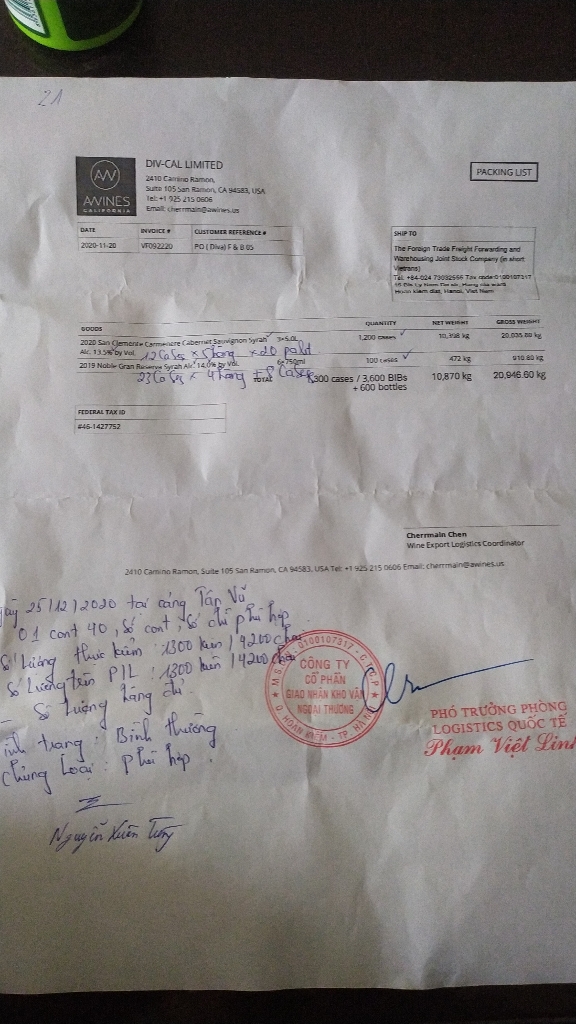 21
AWINES
CALIFORNIA
DIV-CAL LIMITED
2410 Camino Ramon,
Suite 105 San Ramon, CA 94583, USA
Tel: +1 925 215 0606
Email: cherrmain@awines.us
PACKING LIST
DATE INVOICE # CUSTOMER REFERENCE #
2020-11-20 VF092220 PO (Diva) F & B 05
SHIP TO
The Foreign Trade Freight Forwarding and
Warehousing Joint Stock Company (in short
Vietrans)
Tel: +84-024 73032555 Tax code:0100107317
Hoan Kiem dist, Hanoi, Viet Nam
GOODS QUANTITY NET WEIGHT GROSS WEIGHT
2020 San Clemente Carmenere Cabernet Sauvignon Syrah 3×5.0L 1,200 cases 10,398 kg 20,035.80 kg
Alc. 13.5% by Vol.
12 cases × 5 hàng × 20 palet
2019 Noble Gran Reserve Syrah Alc. 14.0% by Vol. 6×750ml 100 cases 472 kg 910.80 kg
23 cases × 4 hàng + 8 cases
TOTAL 1,300 cases / 3,600 BIBs 10,870 kg 20,946.60 kg
+ 600 bottles
FEDERAL TAX ID
#46-1427752
Cherrmain Chen
Wine Export Logistics Coordinator
2410 Camino Ramon, Suite 105 San Ramon, CA 94583, USA Tel: +1 925 215 0606 Email: cherrmain@awines.us
25/12/2020 tại cảng Tân Vũ
01 cont 40, Số cont, số chì phù hợp
Số lượng thực kiểm : 1300 kiện / 4200 chai
Số lượng trên P/L : 1300 kiện / 4200 chai
– Số lượng hàng đủ.
trạng : Bình thường
chủng loại : Phù hợp.
Nguyễn Xuân Tùng
M.S.D.N: 0100107317 - C.T.C.P
CÔNG TY
CỔ PHẦN
GIAO NHẬN KHO VẬN
NGOẠI THƯƠNG
Q. HOÀN KIẾM - TP. HÀ NỘI
PHÓ TRƯỞNG PHÒNG
LOGISTICS QUỐC TẾ
Phạm Việt Linh